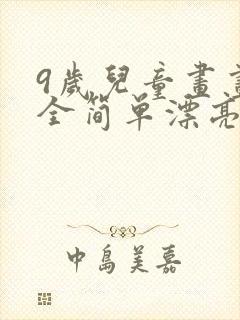 9歲兒童畫
全简单漂亮
中島美嘉